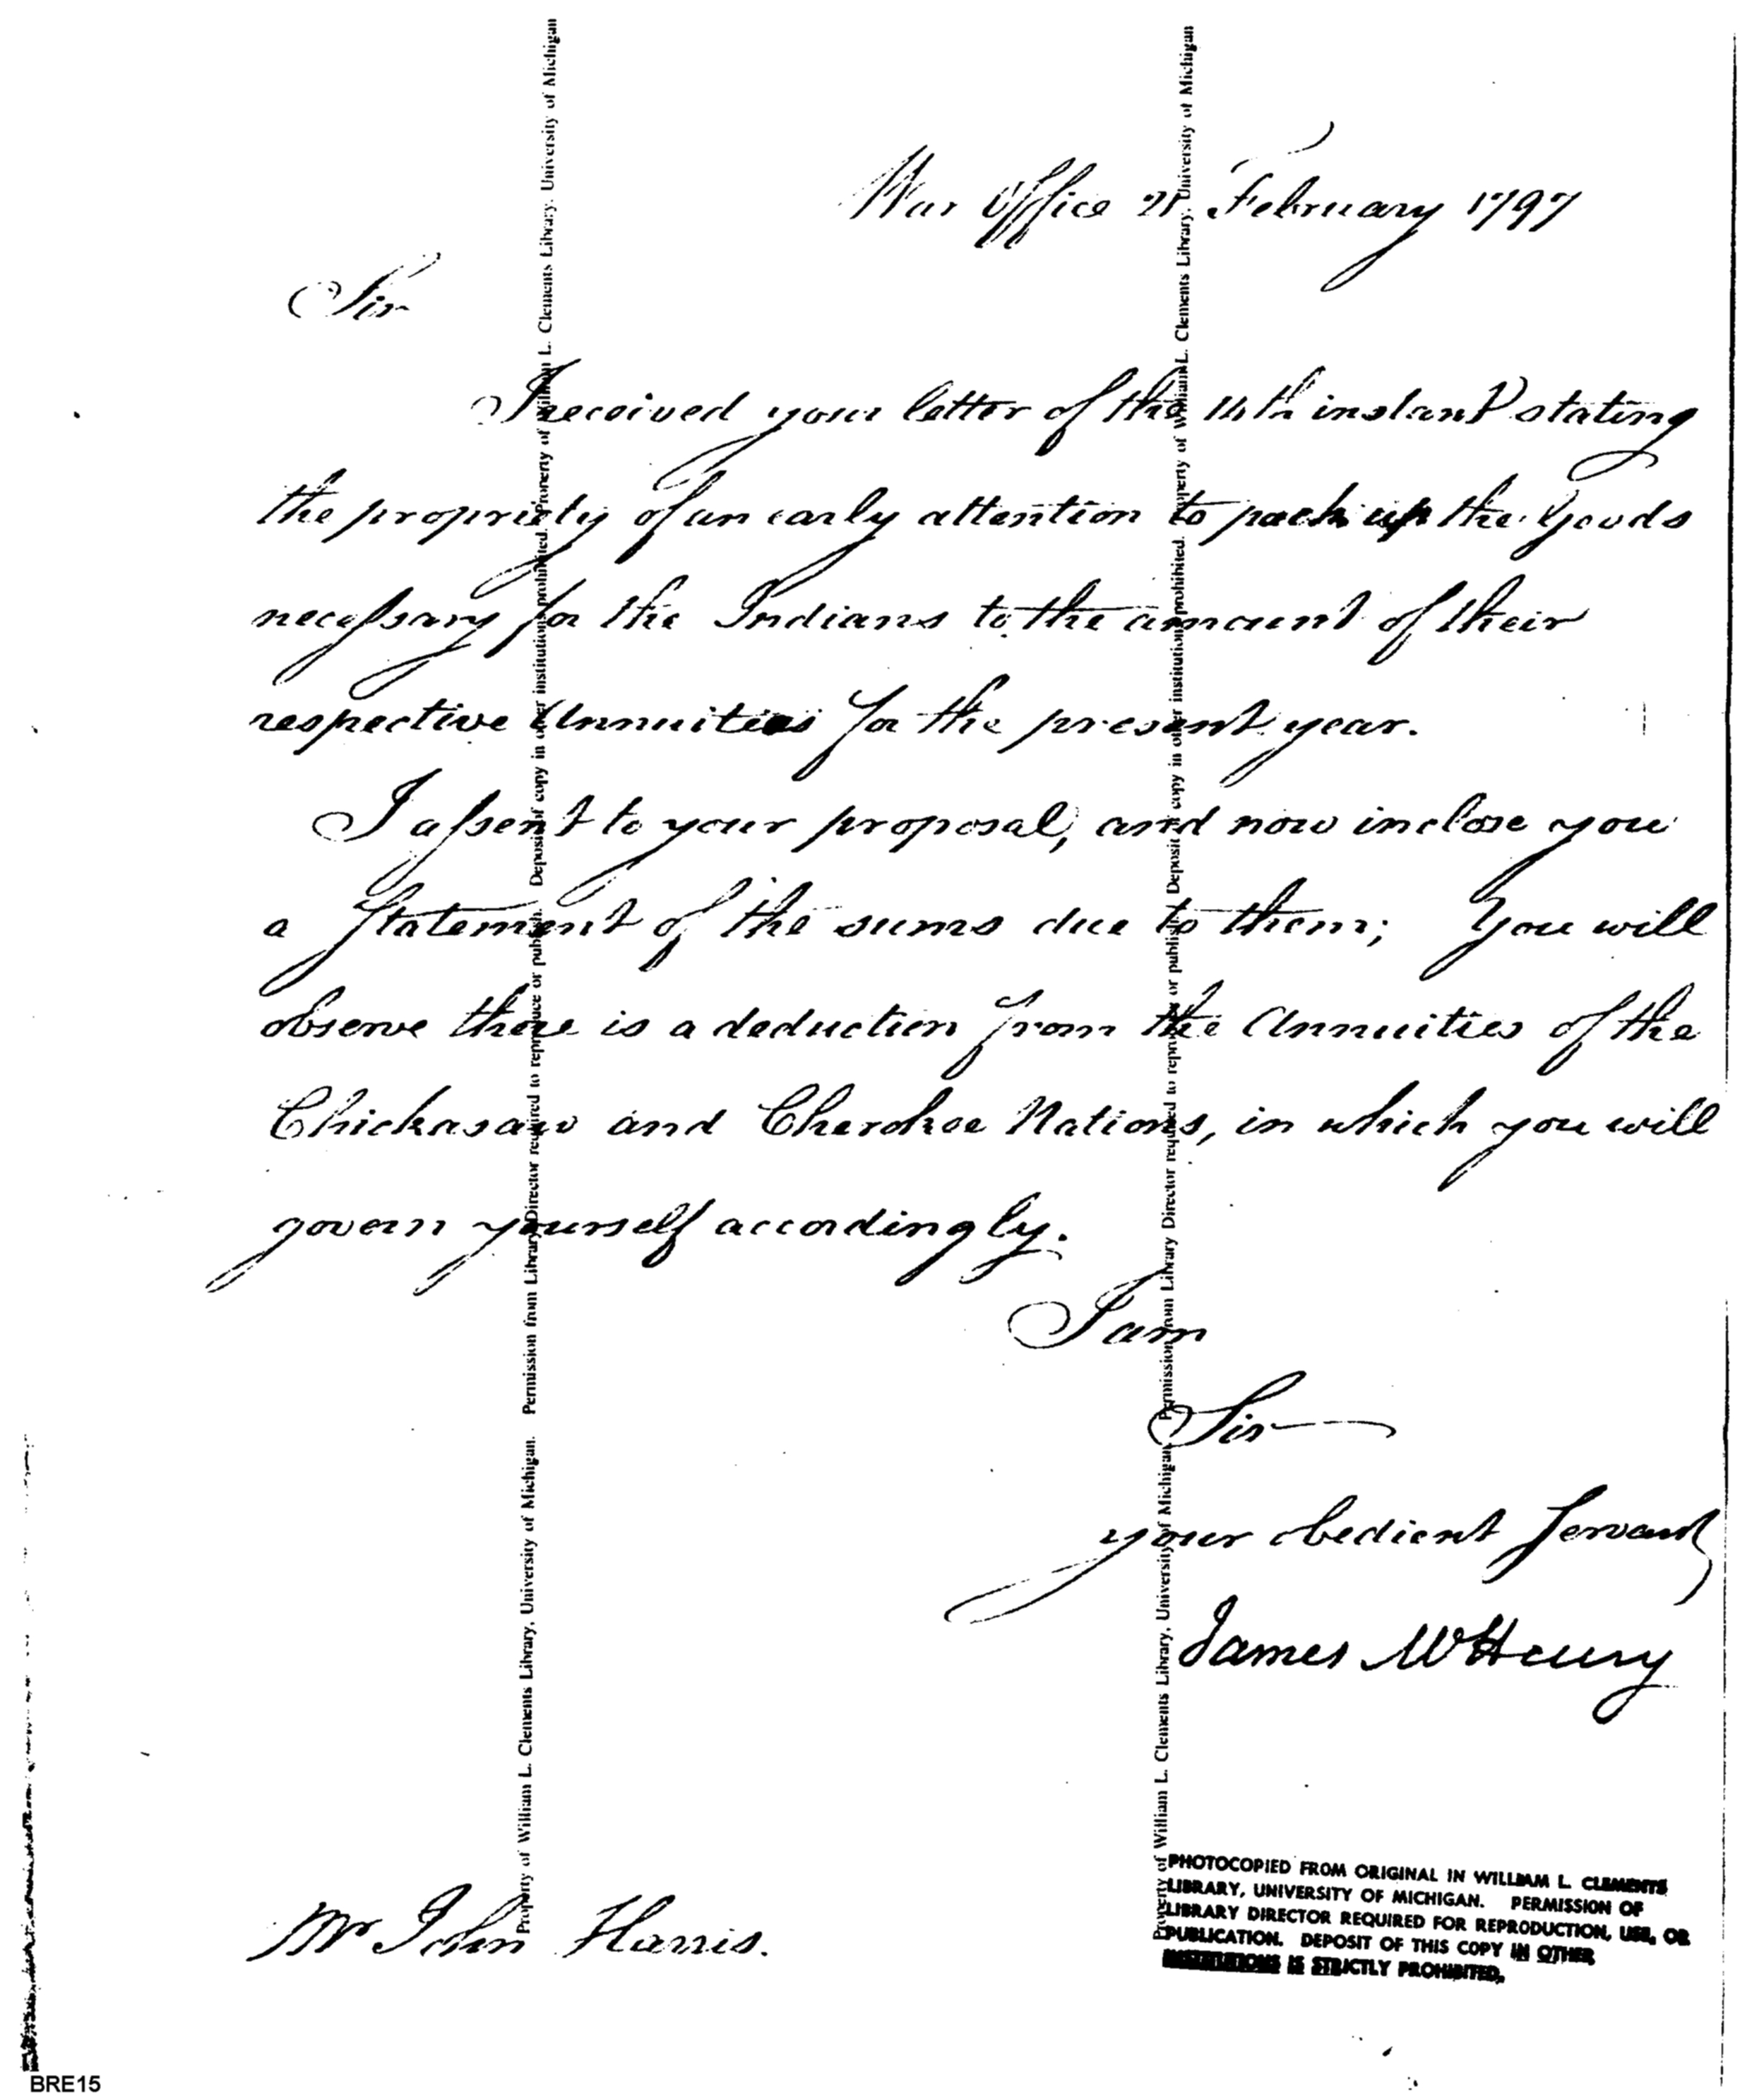 War Office 21 February 1797
Sir
I received your letter of the 14th instant stating
the propriety of an early attention to pack up the Goods
necessary for the Indians to the amount of their
respective Annuities for the present year.
I assent to your proposal, and now inclose you
a Statement of the sums due to them; You will
observe there is a deduction from the Annuities of the
Chickasaw and Cherokee Nations, in which you will
govern yourself accordingly.
I am
Sir
your obedient Servant
James McHenry
Mr John Harris.
PHOTOCOPIED FROM ORIGINAL IN WILLIAM L. CLEMENTS
LIBRARY, UNIVERSITY OF MICHIGAN. PERMISSION OF
LIBRARY DIRECTOR REQUIRED FOR REPRODUCTION, USE, OR
PUBLICATION. DEPOSIT OF THIS COPY IN OTHER
INSTITUTIONS IS STRICTLY PROHIBITED.
Property of William L. Clements Library, University of Michigan. Permission from Library Director required to reproduce or publish. Deposit of copy in other institutions prohibited. Property of William L. Clements Library, University of Michigan
Property of William L. Clements Library, University of Michigan. Permission from Library Director required to reproduce or publish. Deposit of copy in other institutions prohibited. Property of William L. Clements Library, University of Michigan
BRE15